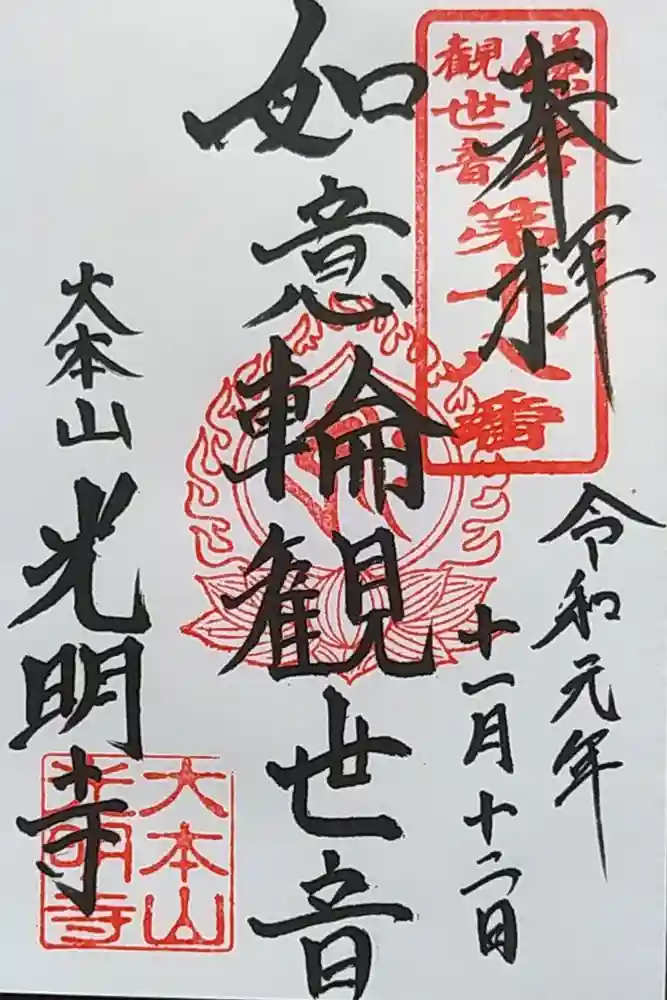 奉拝
鎌倉
観世音
第十八番
令和元年
十一月十二日
如意輪観世音
大本山光明寺
大本山
光明寺